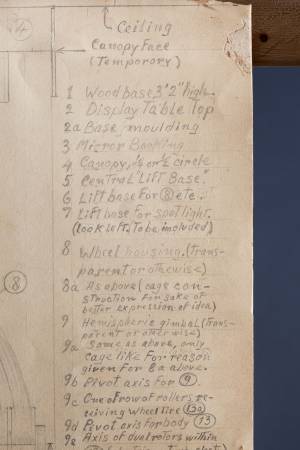 4
Ceiling
Canopy Face
(Temporory)
1 Wood base, 3'2" high.
2 Display Table Top
2a Base moulding
3 Mirror Backing
4 Canopy, ¼ or ½ circle
5 Central "Lift Base."
6 Lift base For 8 etc.
7 Lift base for spot light.
(look left. To be included)
8 Wheel housing. (Trans-
parent or otherwise)
8
8a As above (cage con-
struction for sake of
better expression of idea)
9 Hemispheric gimbal (Trans-
parent or otherwise)
9a Same as above, only
cage like for reason
given for 8a above.
9b Pivot axis for 9.
9c One of row of rollers re-
ceiving wheel like 13a
9d Pivot axis for body 13
9e Axis of dual rotors within